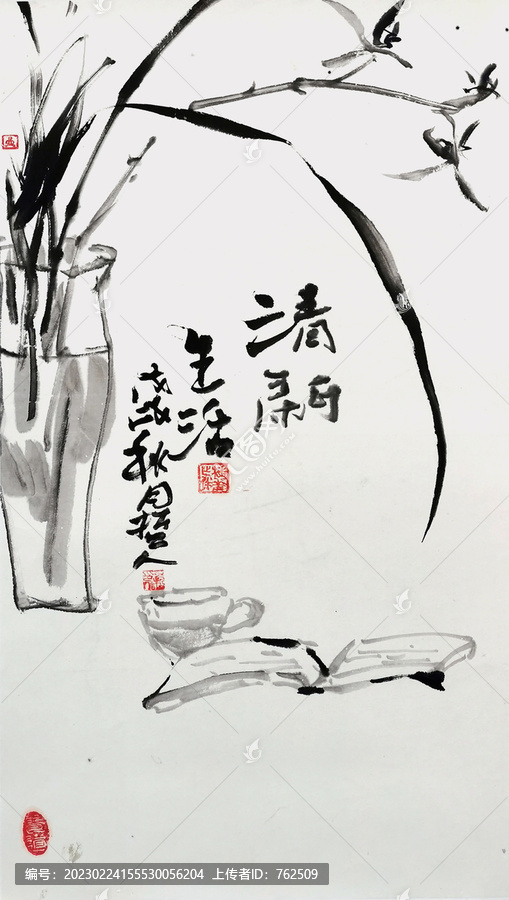 清新
生活
戊戌秋月哲人
编号：20230224155530056204 上传者ID：762509